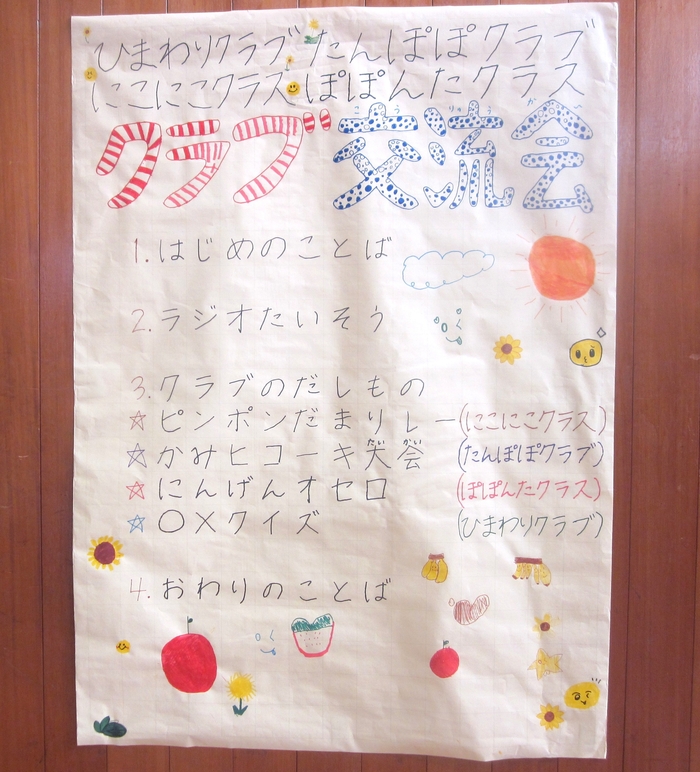 ひまわりクラブ たんぽぽクラブ
にこにこクラス ぽぽんたクラス
こう りゅう かい
クラブ交流会
1. はじめのことば
2. ラジオたいそう
3. クラブのだしもの
☆ ピンポンだまリレー (にこにこクラス)
たい かい
☆ かみヒコーキ大会 (たんぽぽクラブ)
☆ にんげんオセロ (ぽぽんたクラス)
☆ ○×クイズ (ひまわりクラブ)
4. おわりのことば